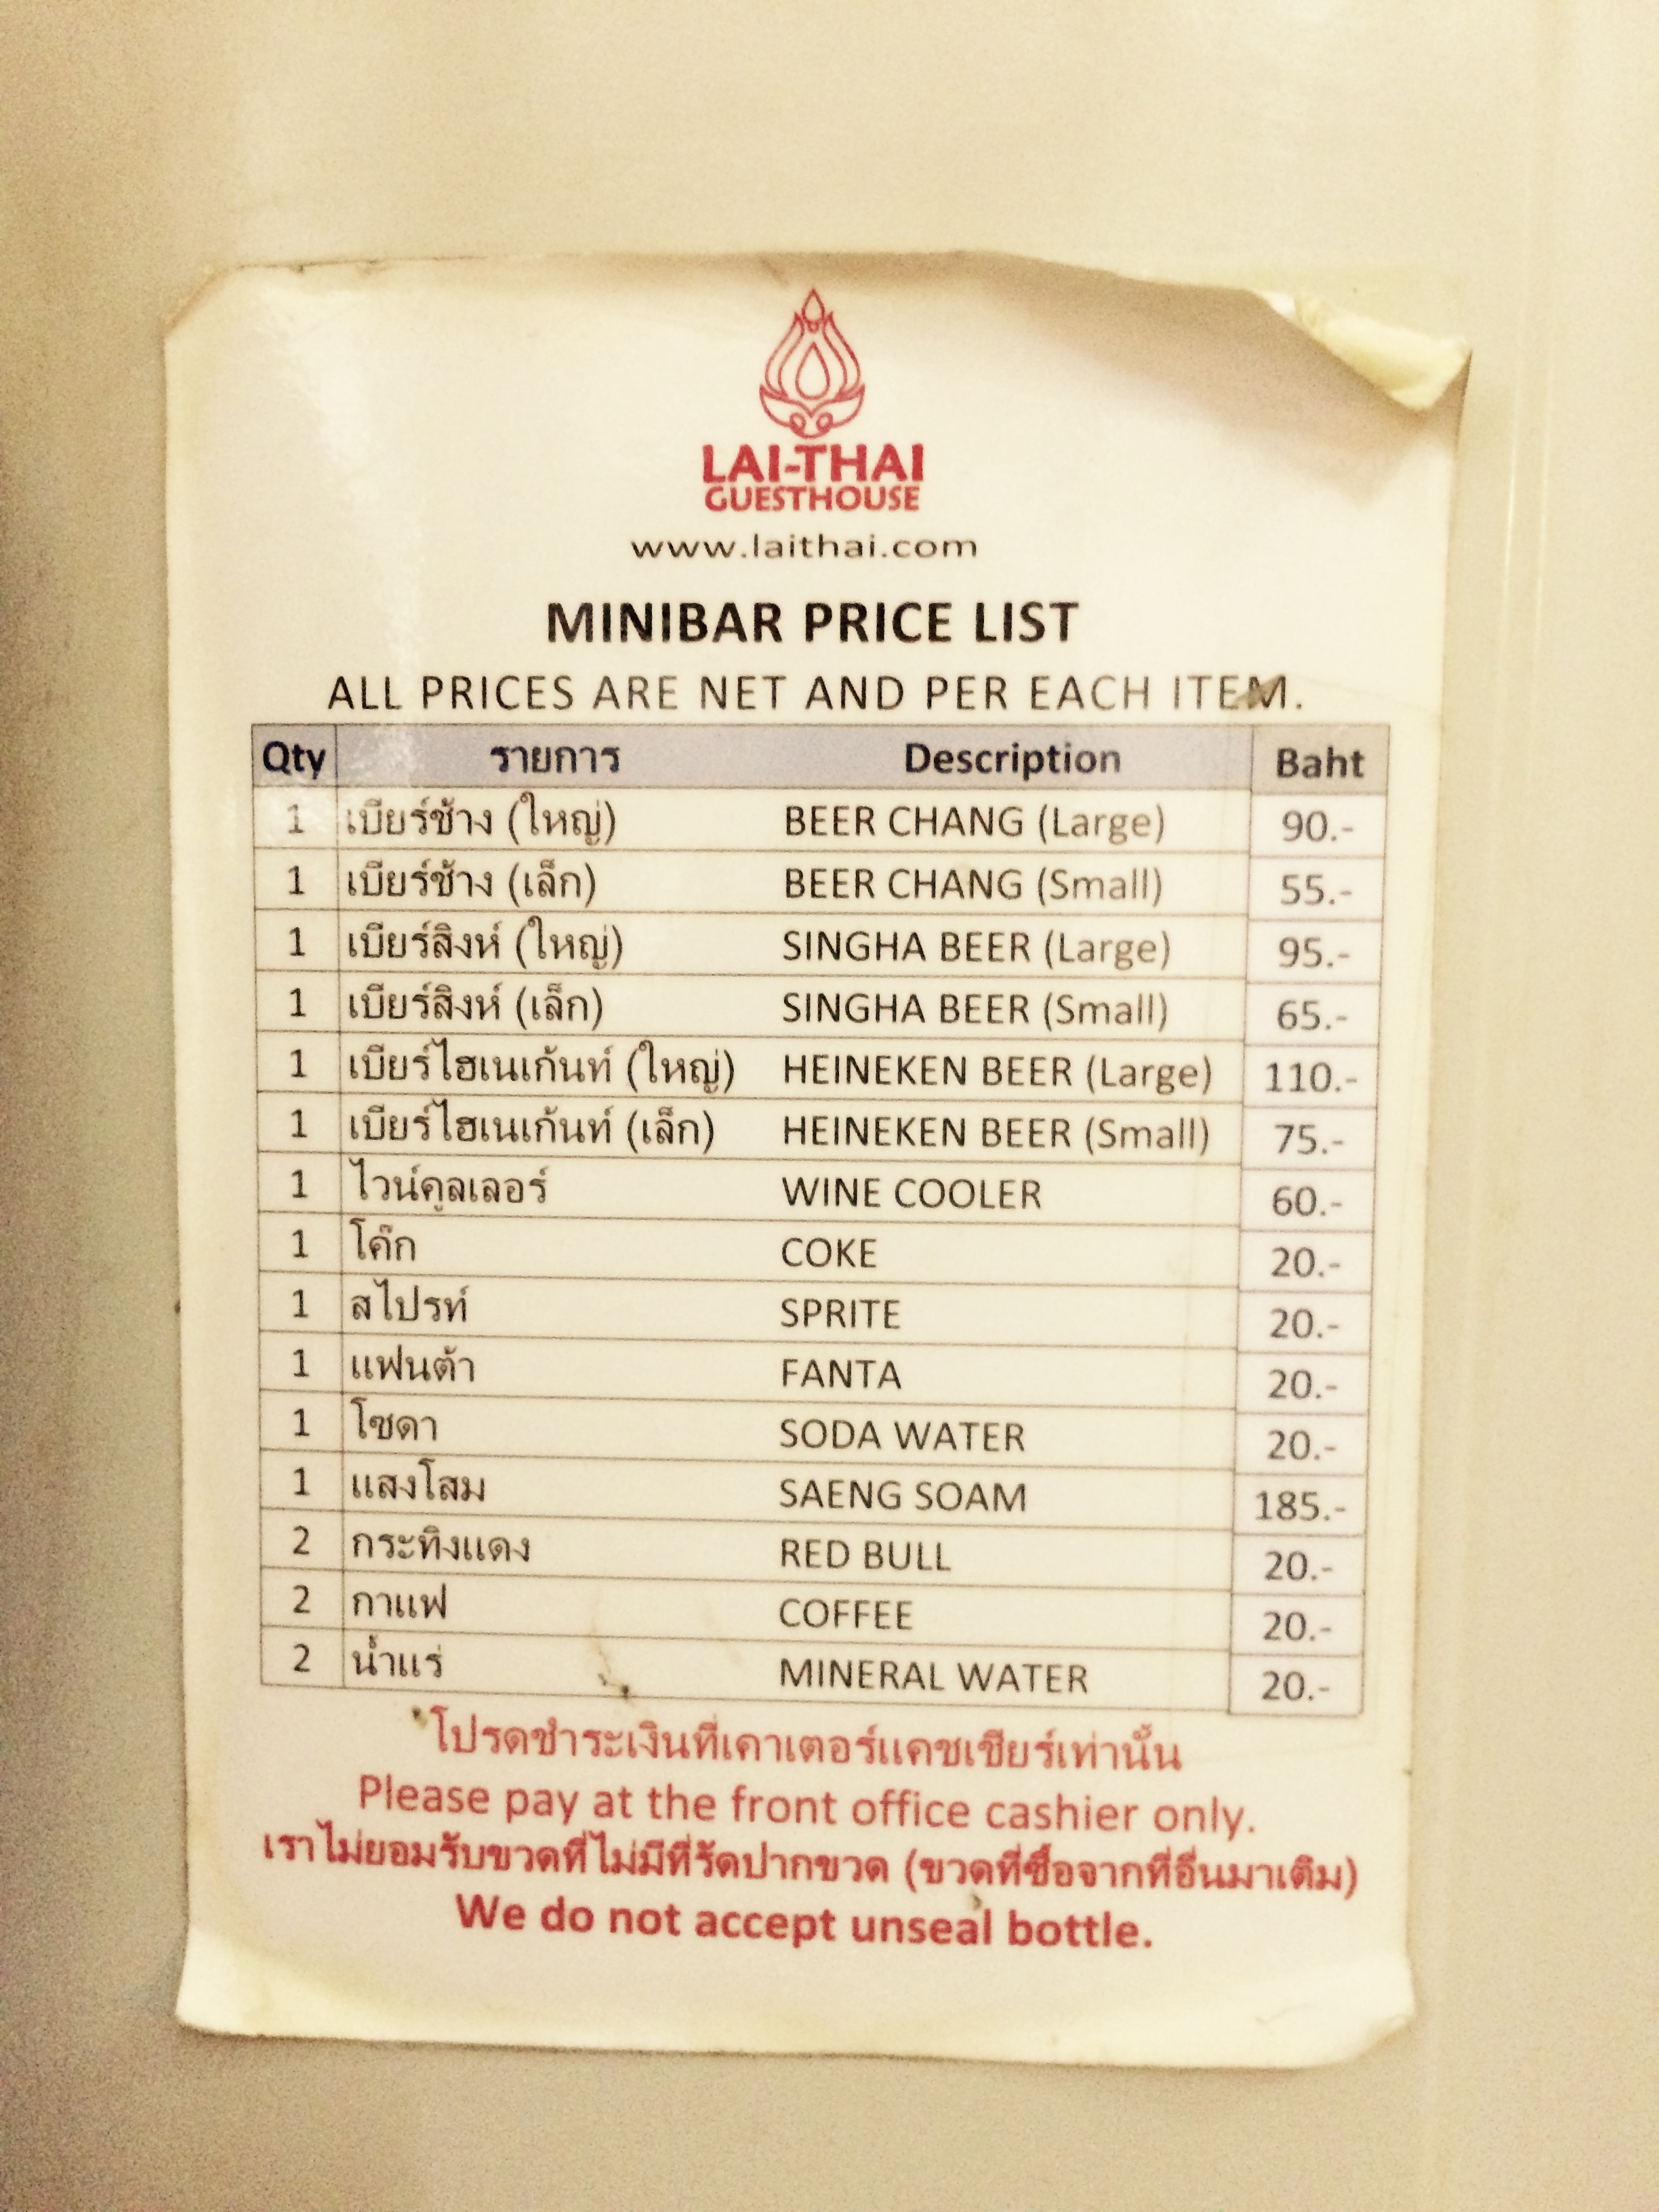 LAI-THAI
GUESTHOUSE
www.laithai.com
MINIBAR PRICE LIST
ALL PRICES ARE NET AND PER EACH ITEM.
Qty รายการ Description Baht
1 เบียร์ช้าง (ใหญ่) BEER CHANG (Large) 90.-
1 เบียร์ช้าง (เล็ก) BEER CHANG (Small) 55.-
1 เบียร์สิงห์ (ใหญ่) SINGHA BEER (Large) 95.-
1 เบียร์สิงห์ (เล็ก) SINGHA BEER (Small) 65.-
1 เบียร์ไฮเนเก้นท์ (ใหญ่) HEINEKEN BEER (Large) 110.-
1 เบียร์ไฮเนเก้นท์ (เล็ก) HEINEKEN BEER (Small) 75.-
1 ไวน์คูลเลอร์ WINE COOLER 60.-
1 โค๊ก COKE 20.-
1 สไปรท์ SPRITE 20.-
1 แฟนต้า FANTA 20.-
1 โซดา SODA WATER 20.-
1 แสงโสม SAENG SOAM 185.-
2 กระทิงแดง RED BULL 20.-
2 กาแฟ COFFEE 20.-
2 น้ำแร่ MINERAL WATER 20.-
โปรดชำระเงินที่เคาเตอร์แคชเชียร์เท่านั้น
Please pay at the front office cashier only.
เราไม่ยอมรับขวดที่ไม่มีที่รัดปากขวด (ขวดที่ซื้อจากที่อื่นมาเติม)
We do not accept unseal bottle.